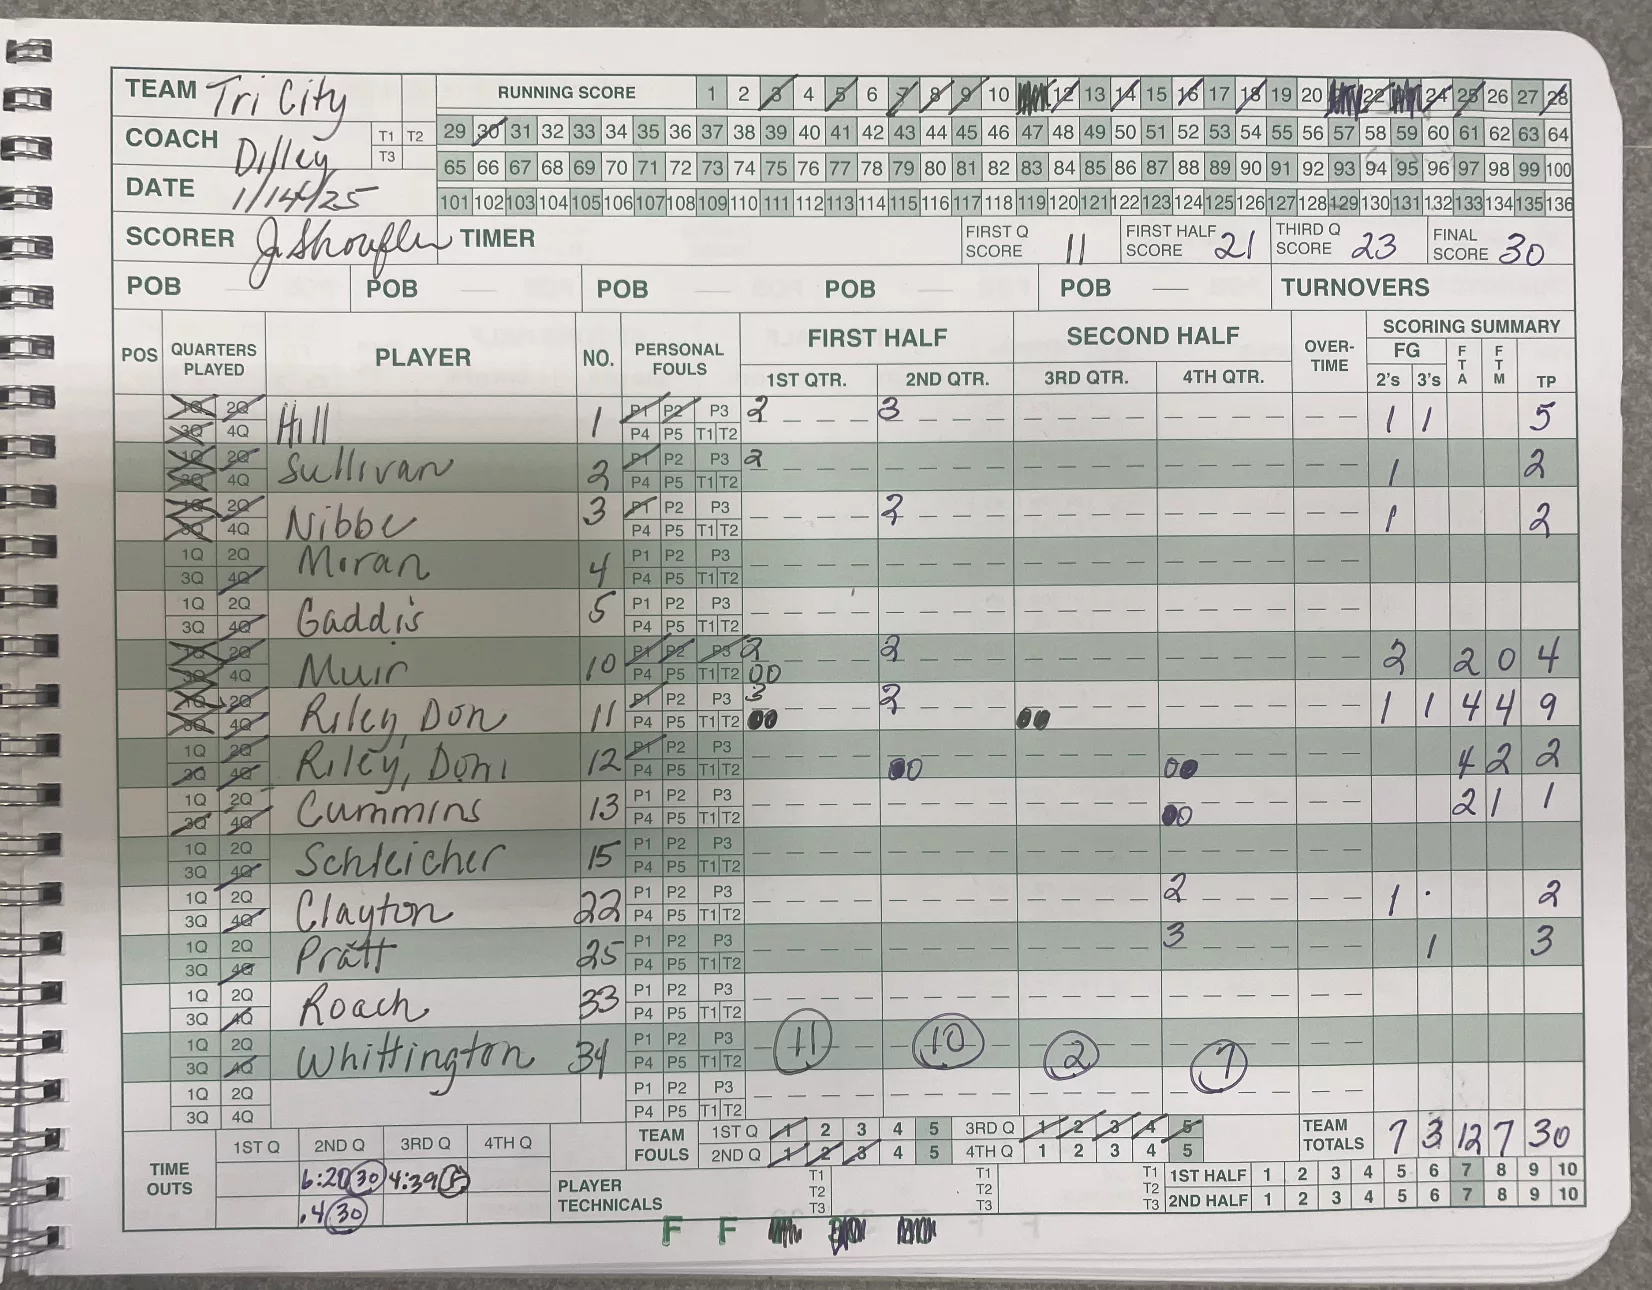 TEAM Tri City
RUNNING SCORE 1 2 3 4 5 6 7 8 9 10 12 13 14 15 16 17 18 19 20 22 24 25 26 27 28
COACH Dilley T1 T2 T3
29 30 31 32 33 34 35 36 37 38 39 40 41 42 43 44 45 46 47 48 49 50 51 52 53 54 55 56 57 58 59 60 61 62 63 64
65 66 67 68 69 70 71 72 73 74 75 76 77 78 79 80 81 82 83 84 85 86 87 88 89 90 91 92 93 94 95 96 97 98 99 100
DATE 1/14/25
101 102 103 104 105 106 107 108 109 110 111 112 113 114 115 116 117 118 119 120 121 122 123 124 125 126 127 128 129 130 131 132 133 134 135 136
SCORER J. Shoufler TIMER FIRST Q SCORE 11 FIRST HALF SCORE 21 THIRD Q SCORE 23 FINAL SCORE 30
POB POB POB POB POB TURNOVERS
POS QUARTERS PLAYED PLAYER NO. PERSONAL FOULS FIRST HALF SECOND HALF OVER-TIME SCORING SUMMARY
1ST QTR. 2ND QTR. 3RD QTR. 4TH QTR. FG 2's 3's FTA FTM TP
1Q 2Q Hill 1 P1 P2 P3 2 3 1 1 5
3Q 4Q P4 P5 T1 T2
1Q 2Q Sullivan 2 P1 P2 P3 2 1 2
3Q 4Q P4 P5 T1 T2
1Q 2Q Nibbe 3 P1 P2 P3 2 1 2
3Q 4Q P4 P5 T1 T2
1Q 2Q Moran 4 P1 P2 P3
3Q 4Q P4 P5 T1 T2
1Q 2Q Gaddis 5 P1 P2 P3
3Q 4Q P4 P5 T1 T2
1Q 2Q Muir 10 P1 P2 P3 2 2 2 2 0 4
3Q 4Q P4 P5 T1 T2 00
1Q 2Q Riley, Don 11 P1 P2 P3 3 2 1 1 4 4 9
3Q 4Q P4 P5 T1 T2 00 00
1Q 2Q Riley, Domi 12 P1 P2 P3 4 2 2
3Q 4Q P4 P5 T1 T2 00 00
1Q 2Q Cummins 13 P1 P2 P3 2 1 1
3Q 4Q P4 P5 T1 T2 00
1Q 2Q Schleicher 15 P1 P2 P3
3Q 4Q P4 P5 T1 T2
1Q 2Q Clayton 22 P1 P2 P3 2 1 2
3Q 4Q P4 P5 T1 T2
1Q 2Q Pratt 25 P1 P2 P3 3 1 3
3Q 4Q P4 P5 T1 T2
1Q 2Q Roach 33 P1 P2 P3
3Q 4Q P4 P5 T1 T2
1Q 2Q Whittington 34 P1 P2 P3 11 10 2 7
3Q 4Q P4 P5 T1 T2
1Q 2Q P1 P2 P3
3Q 4Q P4 P5 T1 T2
TIME OUTS 1ST Q 2ND Q 3RD Q 4TH Q
6:20 30 4:39 F
.4 30
TEAM FOULS 1ST Q 1 2 3 4 5 3RD Q 1 2 3 4 5
2ND Q 1 2 3 4 5 4TH Q 1 2 3 4 5
TEAM TOTALS 7 3 12 7 30
PLAYER TECHNICALS T1 T2 T3 T1 T2 T3 T1 T2 T3
1ST HALF 1 2 3 4 5 6 7 8 9 10
2ND HALF 1 2 3 4 5 6 7 8 9 10
F F